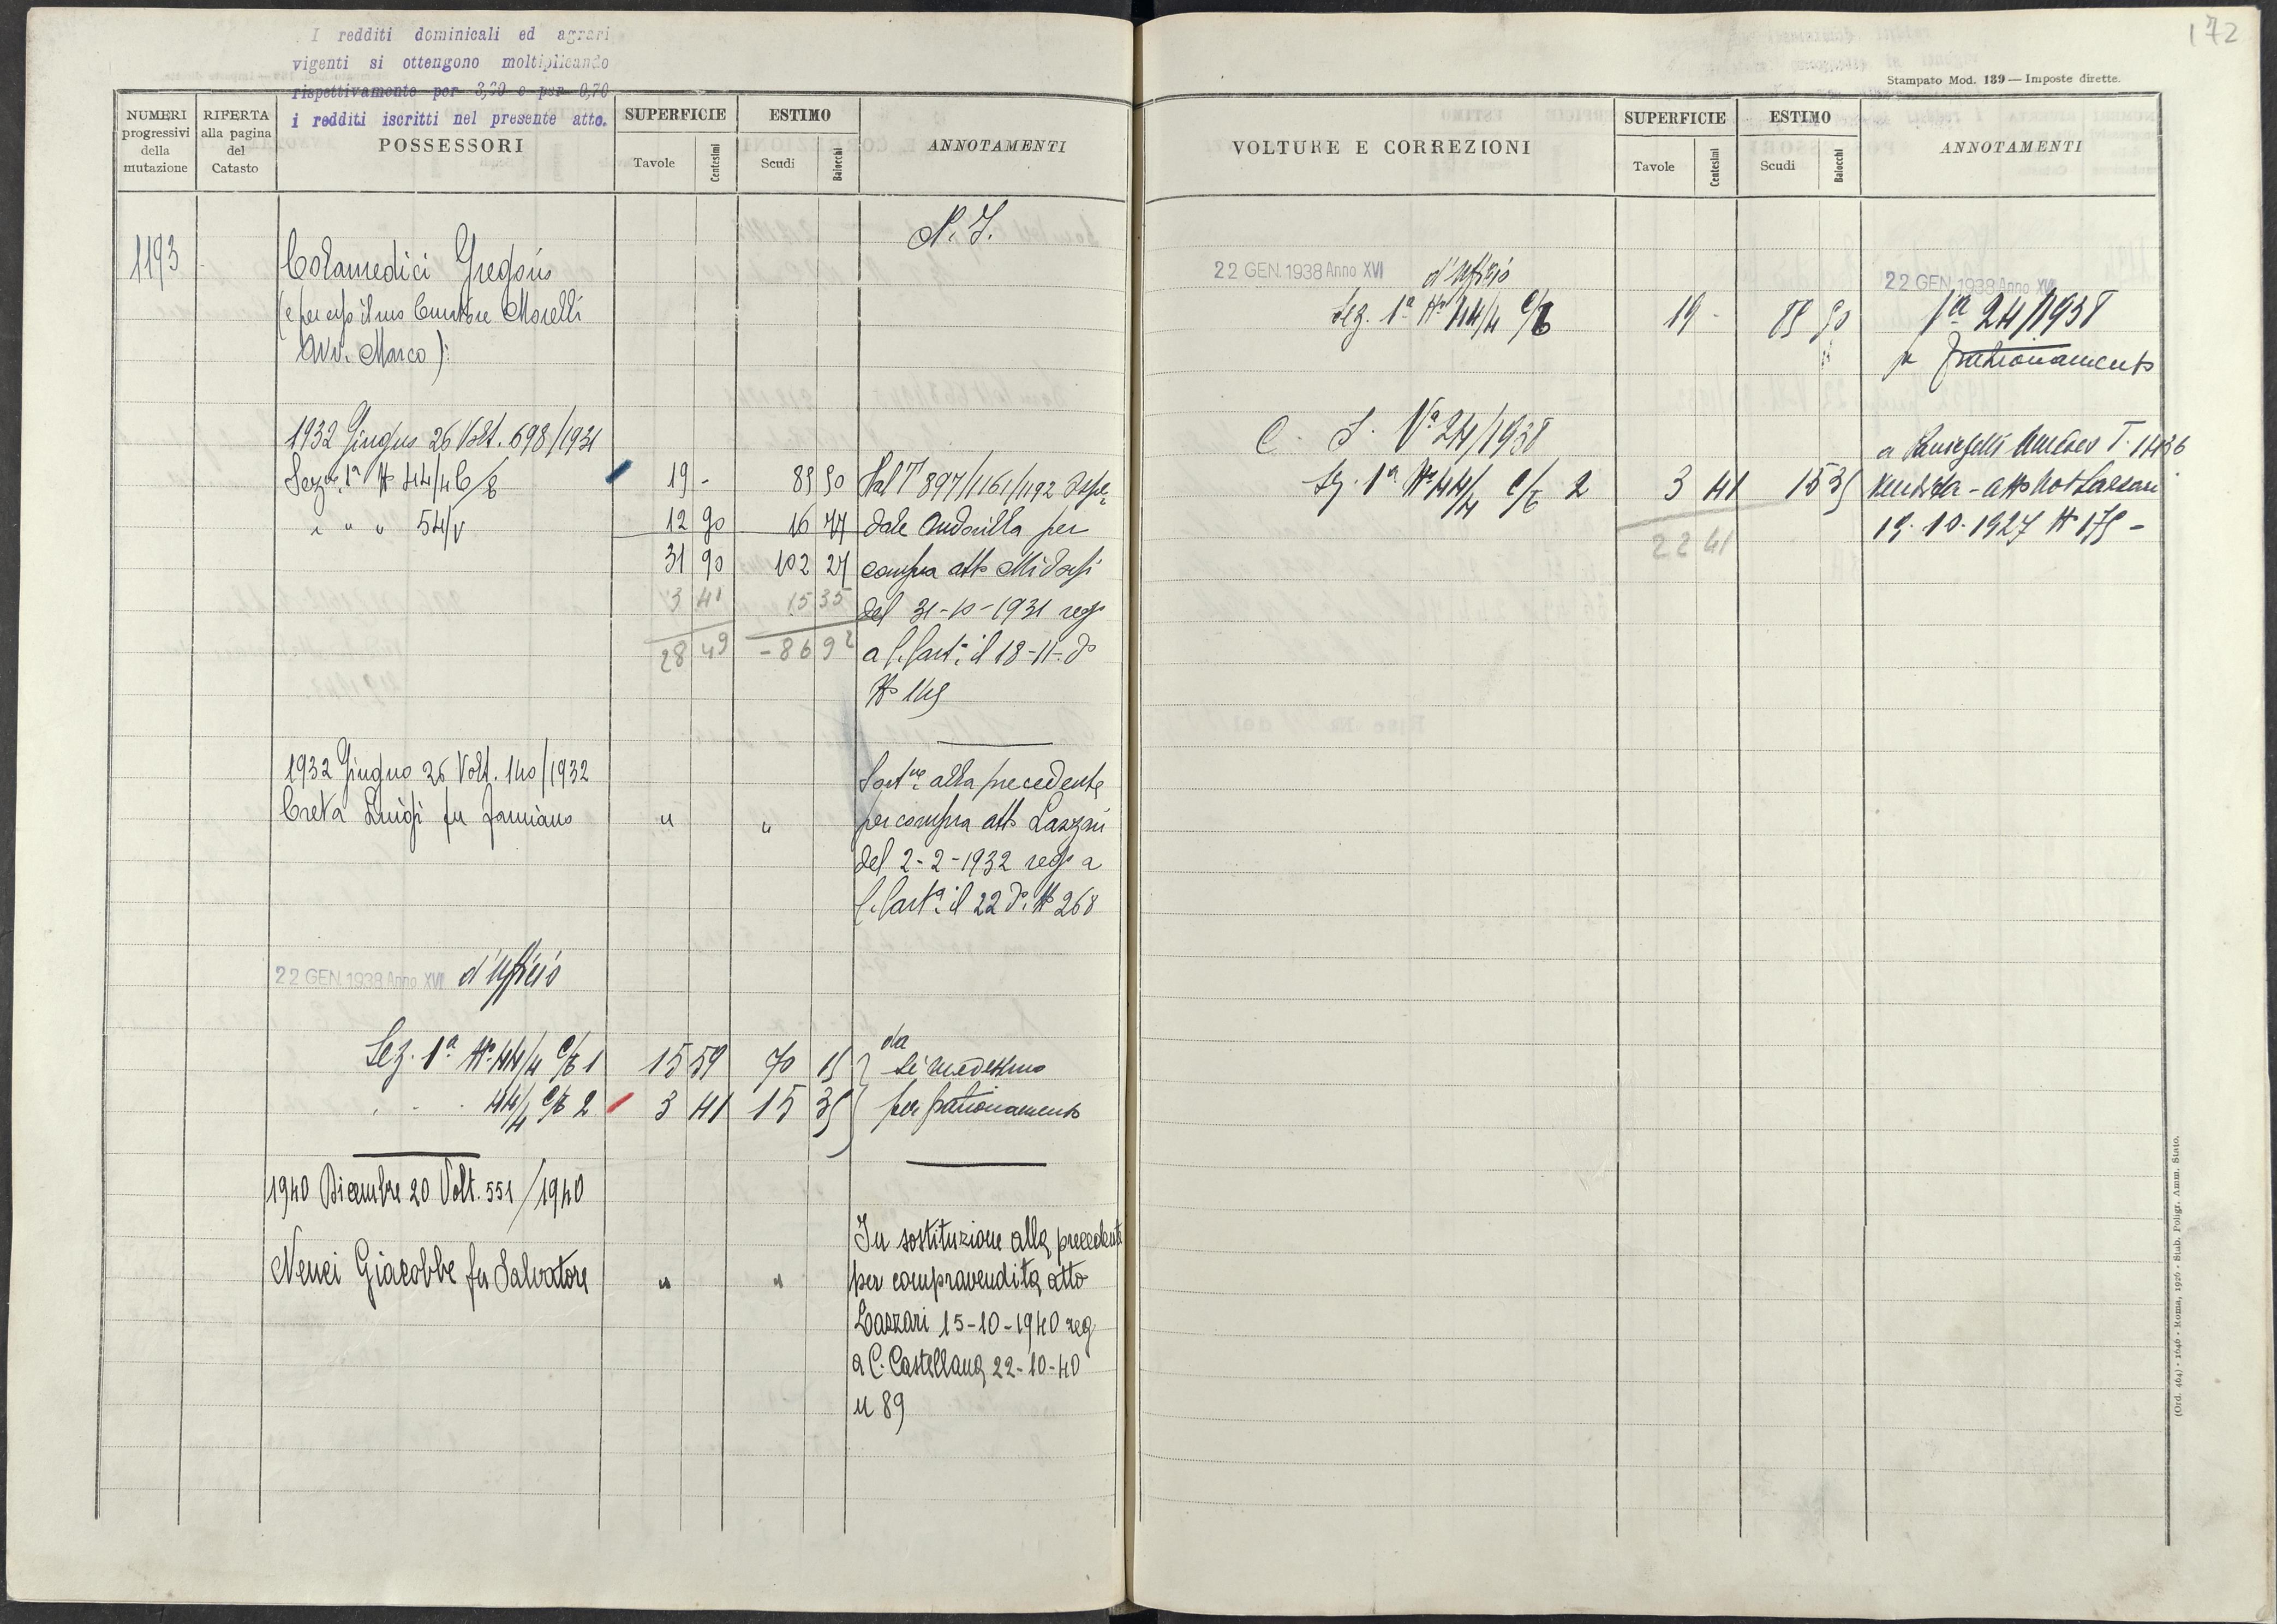 172
I redditi dominicali ed agrari
vigenti si ottengono moltiplicando
rispettivamente per 3,20 e per 0,70
i redditi iscritti nel presente atto.
NUMERI progressivi della mutazione
RIFERTA alla pagina del Catasto
POSSESSORI
SUPERFICIE
Tavole
Centesimi
ESTIMO
Scudi
Baiocchi
ANNOTAMENTI
N. I.
1193
Colamedici Gregorio
(e per esso il suo Curatore Morelli
Avv. Marco)
1932 Giugno 26 Volt. 698/1931
Sezne 1a No 44/4 C/6 19 - 85 50 Dal T 897/1161/1192
" " " 54/v 12 90 16 77 dale per
31 90 102 27 compra atto
3 41 15 35 del 31-10-1931 rego
28 49 - 86 92 a C. Cast. il 18-11-do
No 149
1932 Giugno 26 Volt. 140/1932
Creta Luigi fu Damiano " "
Sostne alla precedente
per compra atto Lazzari
del 2-2-1932 rego a
C. Casta il 22 do No 268
22 GEN. 1938 Anno XVI d'Ufficio
Sez. 1a No 44/4 C/6 1 15 59 70 15 da
se medesimo
44/4 C/6 2 3 41 15 35 per frazionamento
1940 Dicembre 20 Volt. 551/1940
Nenci Giacobbe fu Salvatore " "
In sostituzione alla precedente
per compravendita atto
Lazzari 15-10-1940 reg
a C. Castellana 22-10-40
n 89
Stampato Mod. 139 — Imposte dirette.
VOLTURE E CORREZIONI
SUPERFICIE
Tavole
Centesimi
ESTIMO
Scudi
Baiocchi
ANNOTAMENTI
22 GEN. 1938 Anno XVI d'Ufficio
22 GEN. 1938 Anno XVI
Sez. 1a No 44/4 C/6 19 - 85 50 Va 24/1938
per frazionamento
C. S. Va 24/1938
a Amedeo T. 1436
Sez. 1a No 44/4 C/6 2 3 41 15 35 vendita - atto Not Lazzari
22 41
19-10-1927 No 175 -
(Ord. 464) - 1646 - Roma, 1926 - Stab. Poligr. Amm. Stato.